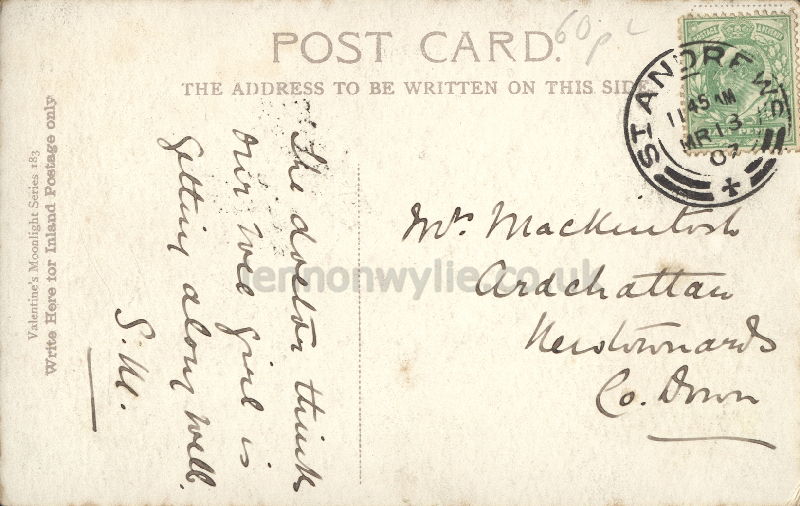 POST CARD.
60p
THE ADDRESS TO BE WRITTEN ON THIS SIDE
ST ANDREWS
11 45 AM
MR 13
07
Valentine's Moonlight Series 183
Write Here for Inland Postage only
The doctor thinks
our wee girl is
getting along well.
S. M.
Mrs Mackintosh
Ardchattan
Newtownards
Co. Down
lennonwylie.co.uk